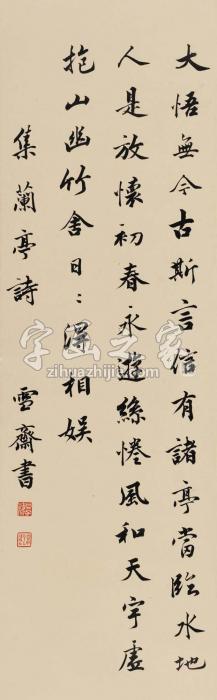 大悟無今古斯言信有諸亭當臨水地
人是放懷初春永遊絲惓風和天宇虛
抱山幽竹舍日〻得相娱
集蘭亭詩 雪齋書
字画之家
zihuazhijia.com